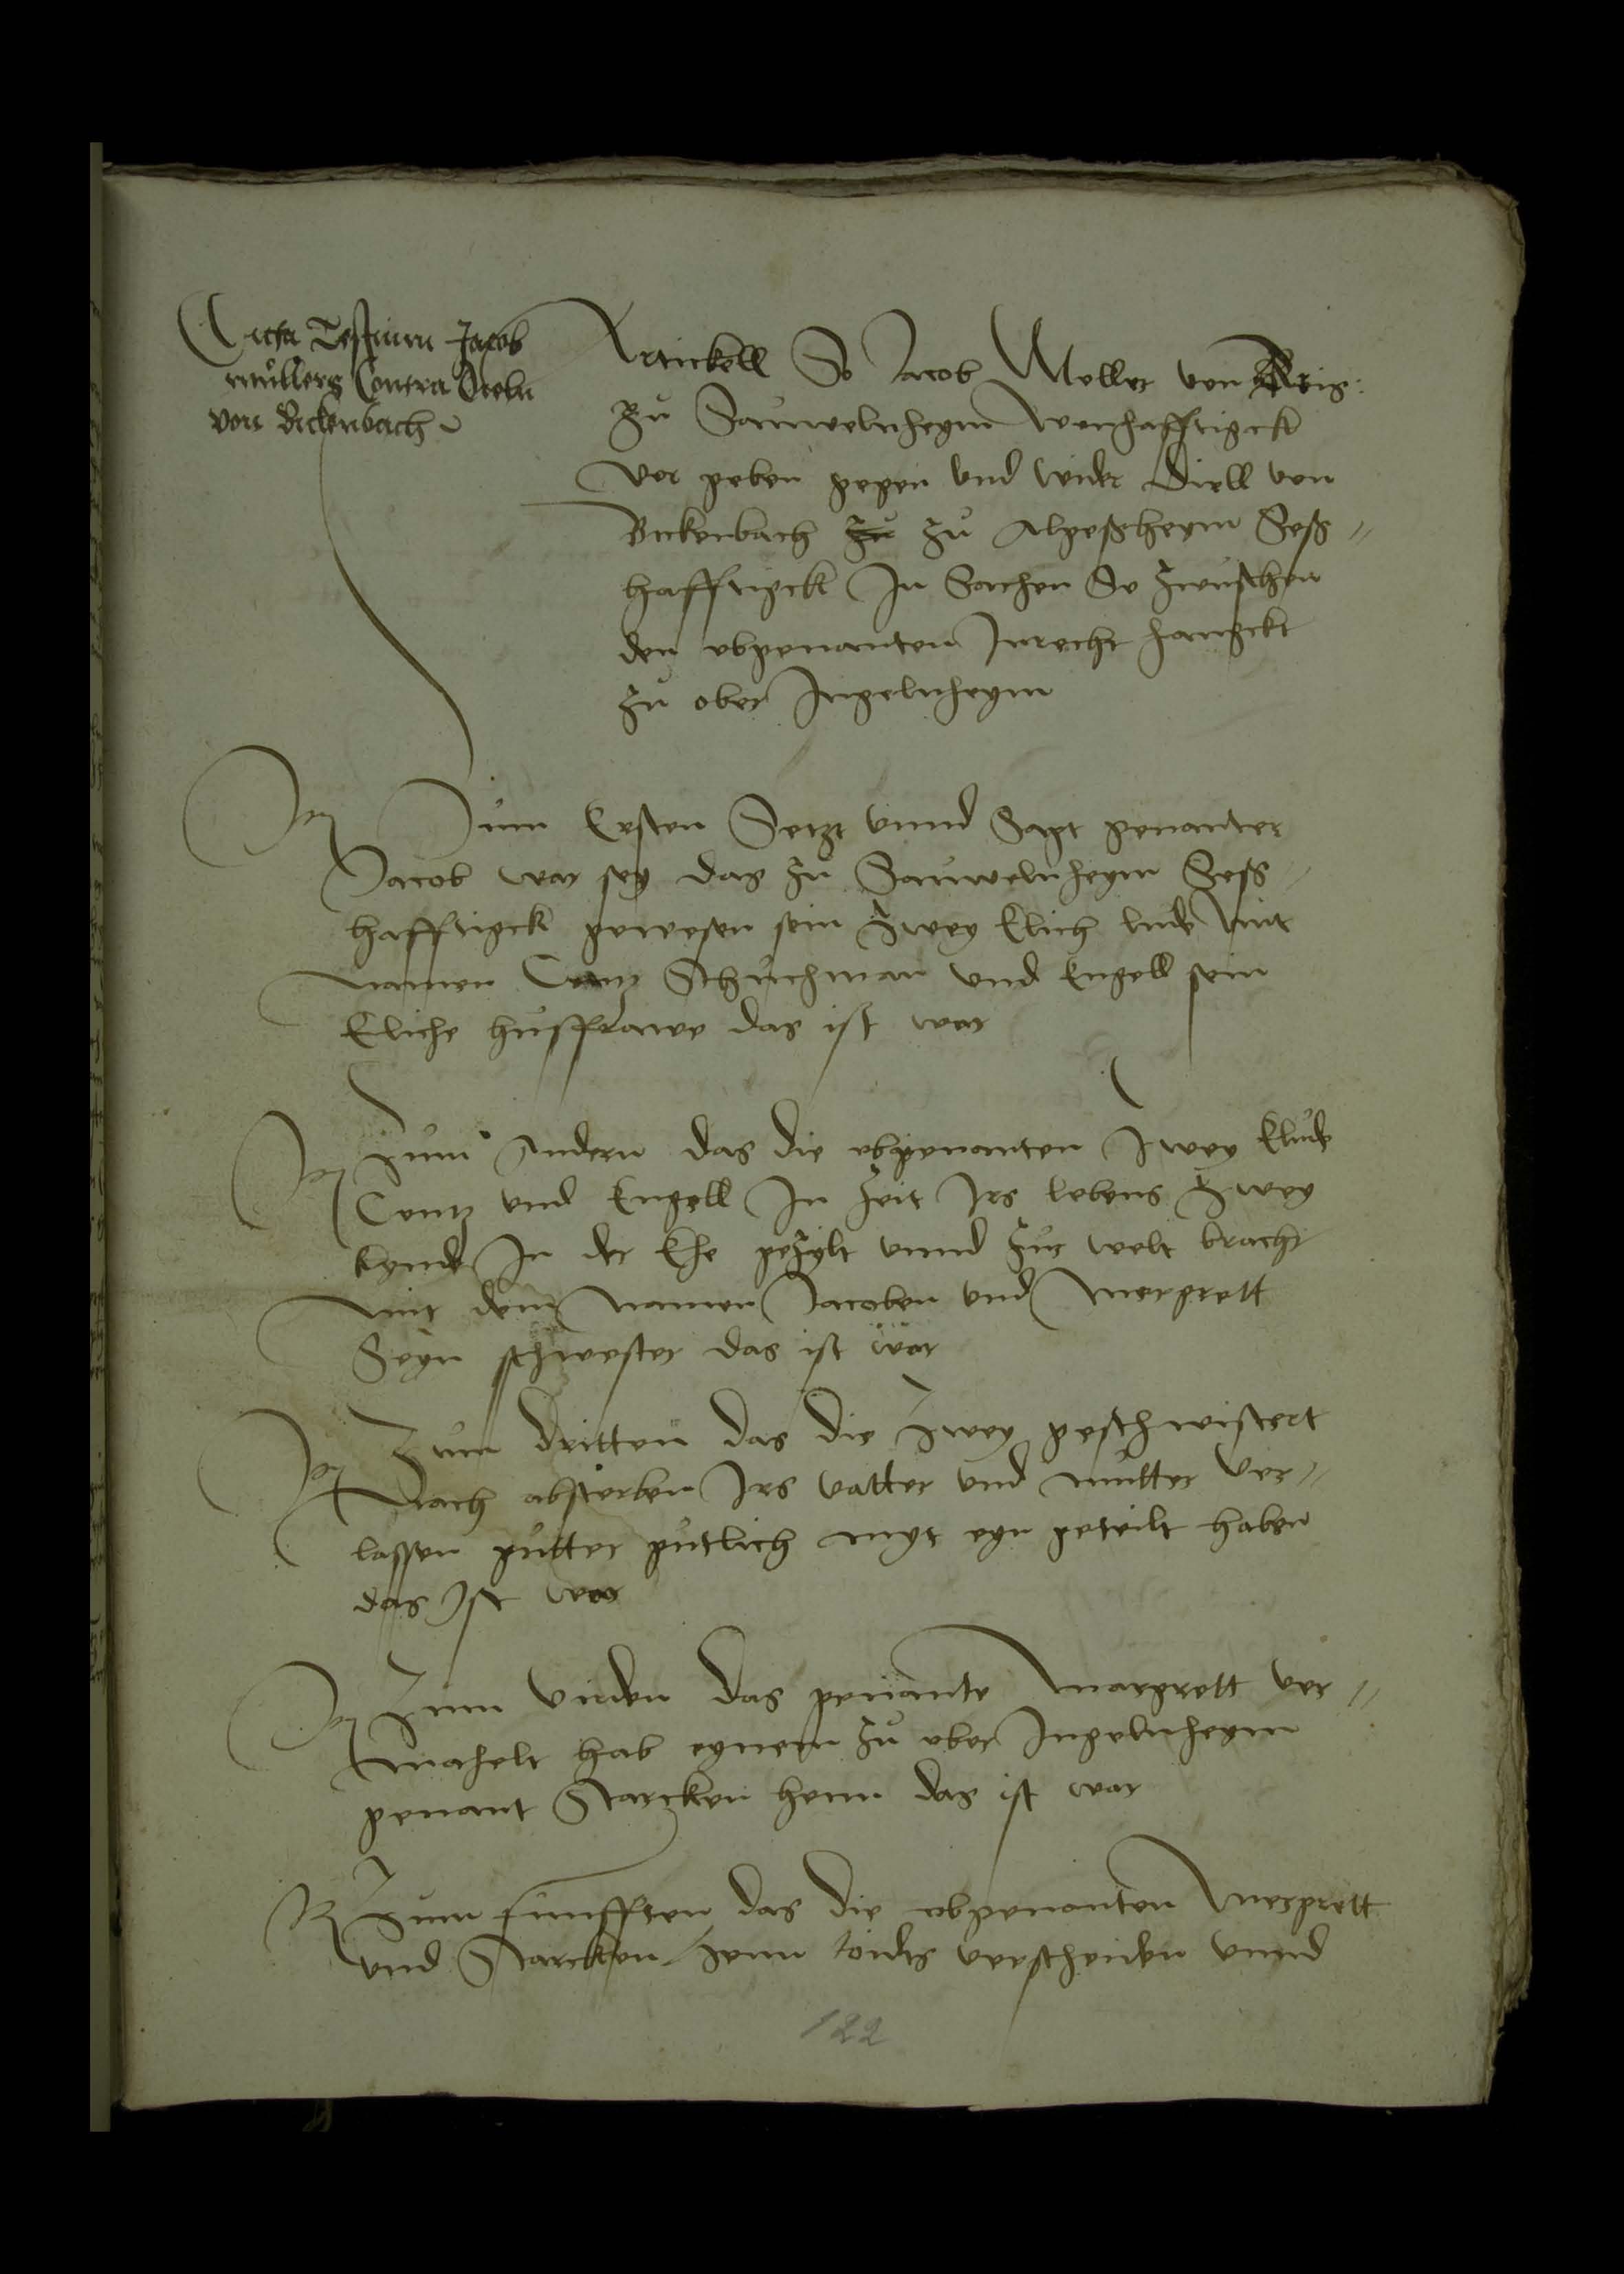 Dicta Testium Jacob
mullers Contra Dieln
von Bickenbach
Artickell So Jacob Moller von
zu Sauwelnheym wonhafftigck
vor geben gegen vnd wider Diell von
Bickenbach zu zu Algeßheym Seß
hafftigck In Sachen So zwuschen
den obgenanten Inrecht hangckt
zu ober Ingelnheym
Zum Ersten Setzt vnnd Sagt genanter
Jacob war sey das zu Sauwelnheym Seß
hafftigck gewesen sein Zwey Elich lude mit
namen Contz Schuchman vnd Engell sein
Eliche husffrawe das ist war
Zum Andern das die obgenanten Zwey Elude
Contz vnd Engell In zeit Irs lebens Zwey
kynde In der Ehe gezylt vnnd zur welt bracht
mit dem namen Jacoben vnd mergrett
Seyn schwester das ist war
Zum Dritten das die Zwey geschwistert
Nach absterben Irs vatter vnd mutter ver
lassen gutter gutlich myt eyn geteilt haben
das Ist war
Zum virden das genante margrett ver
mahelt hab eynem zu ober Ingelnheym
genant Starcken henn das ist war
Zum funfften das die obgenanten mergrett
vnd Starcken henn todes verscheiden vnnd
122